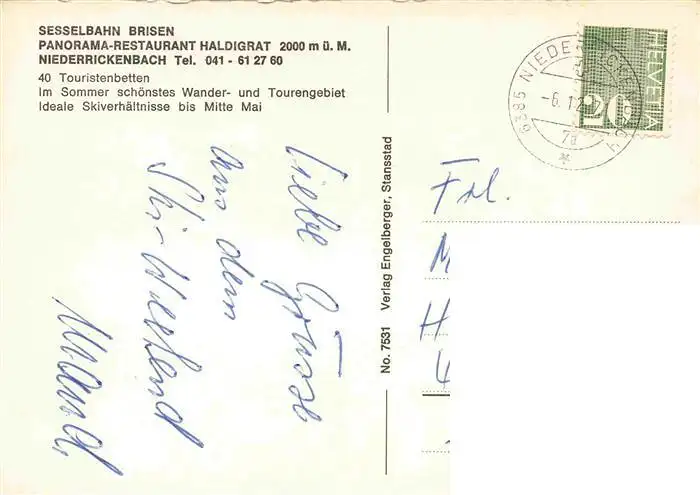 SESSELBAHN BRISEN
PANORAMA-RESTAURANT HALDIGRAT 2000 m ü. M.
NIEDERRICKENBACH Tel. 041 - 61 27 60
40 Touristenbetten
Im Sommer schönstes Wander- und Tourengebiet
Ideale Skiverhältnisse bis Mitte Mai
Liebe Grüsse
aus dem
Ski-Weekend
No. 7531 Verlag Engelberger, Stansstad
6385 NIEDERRICKENBACH
-6.12
HELVETIA
20
Frl.
M
H
4